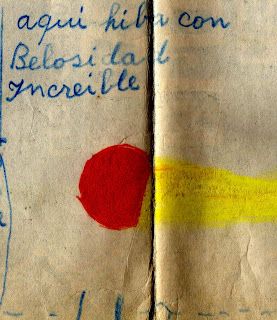 aqui hiba con
Belosidad
Increible